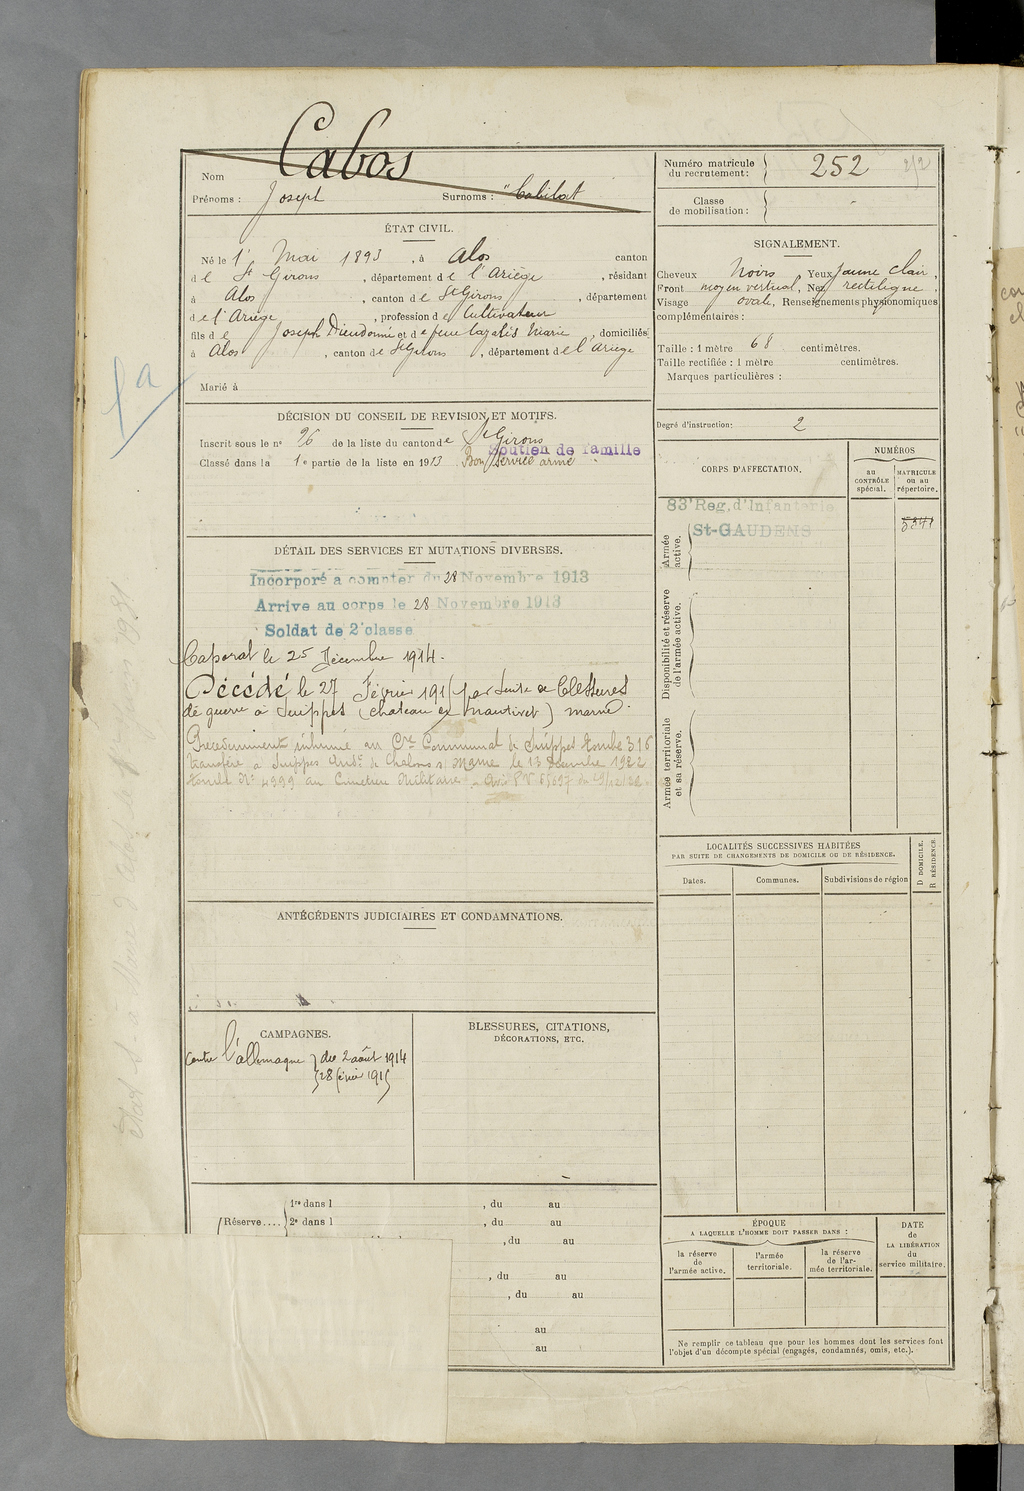 Nom Cabos
Prénoms : Joseph Surnoms : "Cabibat
Numéro matricule du recrutement : 252 212
Classe de mobilisation :
ÉTAT CIVIL.
Né le 1er Mai 1893, à Alos canton
de St Girons, département de l'Ariège, résidant
à Alos, canton de St Girons, département
de l'Ariège, profession de Cultivateur
fils de Joseph Dieudonné et de feue Marie, domiciliés
à Alos, canton de St Girons, département de l'Ariège
Marié à
SIGNALEMENT.
Cheveux Noirs Yeux jaune clair,
Front moyen vertical, Nez rectiligne,
Visage ovale, Renseignements physionomiques
complémentaires :
Taille : 1 mètre 68 centimètres.
Taille rectifiée : 1 mètre centimètres.
Marques particulières :
Degré d'instruction : 2
DÉCISION DU CONSEIL DE REVISION ET MOTIFS.
Inscrit sous le n° 96 de la liste du canton de St Girons
Soutien de famille
Classé dans la 1e partie de la liste en 1913 Bon service armé
DÉTAIL DES SERVICES ET MUTATIONS DIVERSES.
Incorporé a compter du 28 Novembre 1913
Arrive au corps le 28 Novembre 1913
Soldat de 2e classe
Caporal le 25 Décembre 1914.
Décédé le 27 Février 1915 par suite de Blessures
de guerre à Suippes (chateau de Nantivet) Marne.
Precedemment inhumé au Cre Communal de Suippes tombe 316
transféré à Suippes Arrdt de Chalons s/ Marne le 13 Décembre 1922
tombe No 4399 au Cimetière Militaire - Avis P.V.
CORPS D'AFFECTATION.
NUMÉROS
au CONTRÔLE spécial.
MATRICULE ou au répertoire.
Armée active.
83e Reg. d'Infanterie
St-GAUDENS
5341
Disponibilité et réserve de l'armée active.
Armée territoriale et sa réserve.
LOCALITÉS SUCCESSIVES HABITÉES
PAR SUITE DE CHANGEMENTS DE DOMICILE OU DE RÉSIDENCE.
Dates. Communes. Subdivisions de région
D DOMICILE. R RÉSIDENCE.
ANTÉCÉDENTS JUDICIAIRES ET CONDAMNATIONS.
CAMPAGNES.
contre l'allemagne du 2 août 1914
28 février 1915
BLESSURES, CITATIONS,
DÉCORATIONS, ETC.
Réserve.... 1re dans l , du au
2e dans l , du au
, du au
, du au
, du au
au
au
ÉPOQUE
A LAQUELLE L'HOMME DOIT PASSER DANS :
la réserve de l'armée active.
l'armée territoriale.
la réserve de l'armée territoriale.
DATE de LA LIBÉRATION du service militaire.
Ne remplir ce tableau que pour les hommes dont les services font
l'objet d'un décompte spécial (engagés, condamnés, omis, etc.).